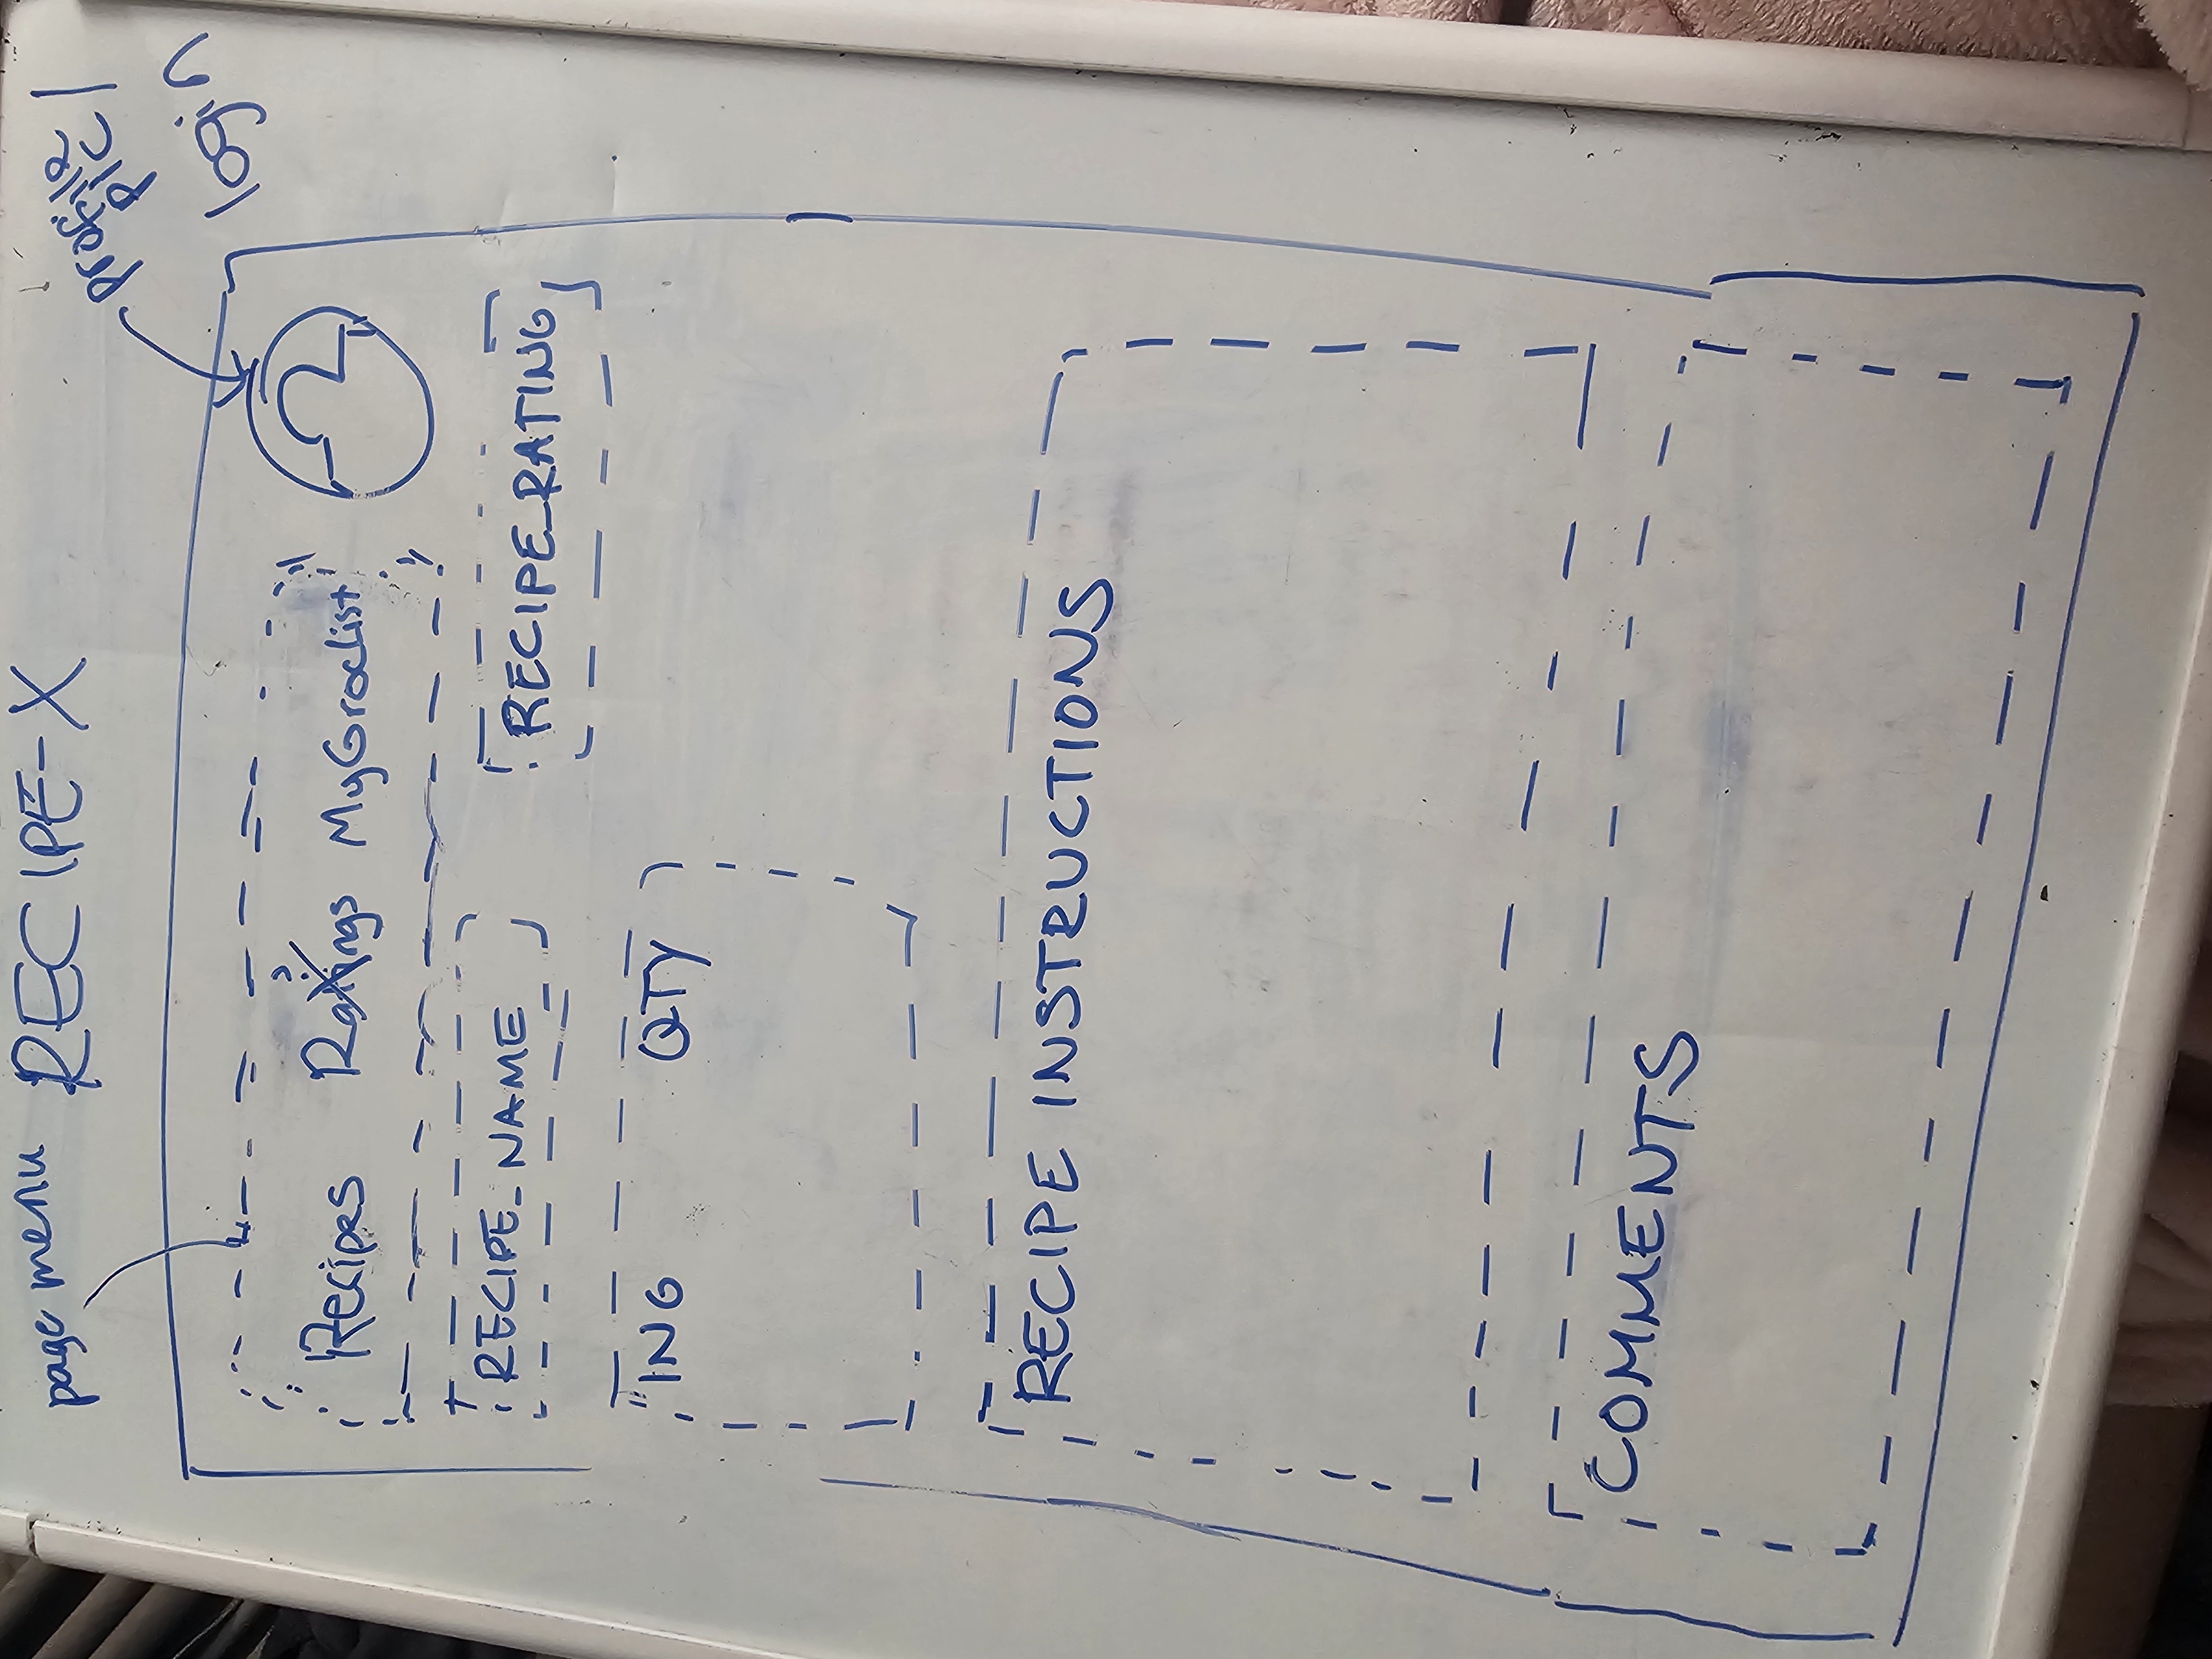 page menu RECIPE-X
profile
pic /
login
?
Recipes Ratings MyGrocList
RECIPE_NAME
RECIPE_RATING
ING QTY
RECIPE INSTRUCTIONS
COMMENTS